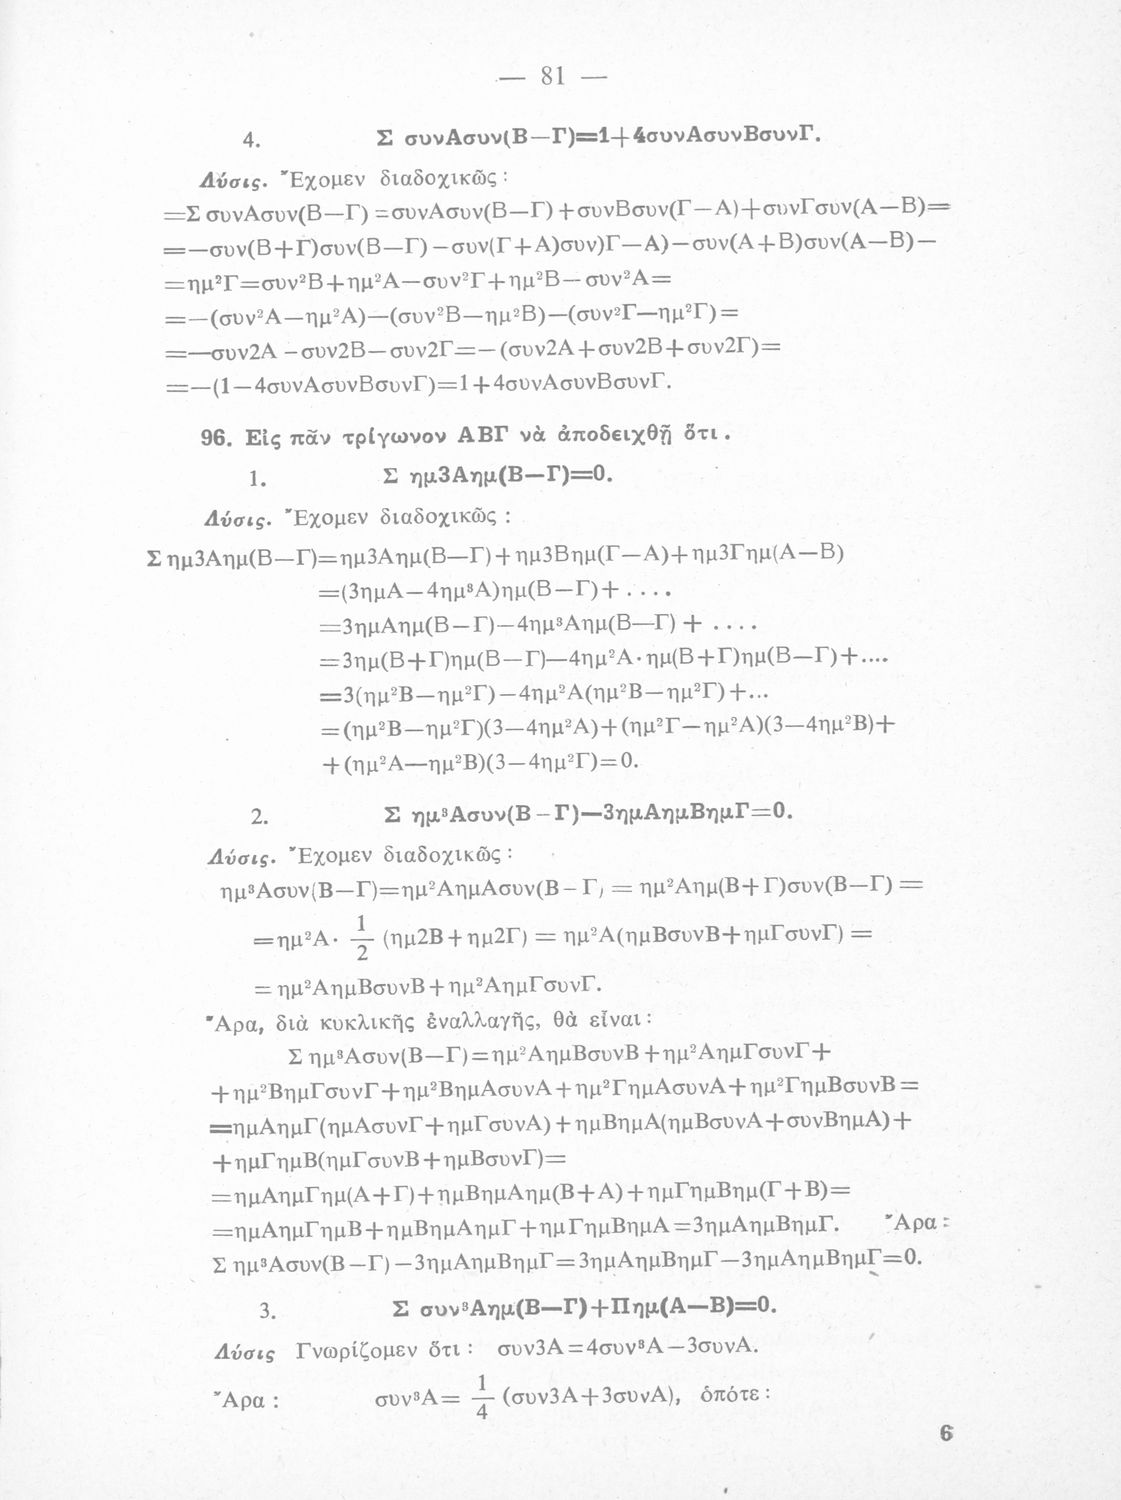 — 81 —
4. Σ συνΑσυν(Β—Γ)=1+4συνΑσυνΒσυνΓ.
Λύσις. Ἔχομεν διαδοχικῶς :
=Σ συνΑσυν(Β—Γ) =συνΑσυν(Β—Γ) +συνΒσυν(Γ—Α)+συνΓσυν(Α—Β)=
=—συν(Β+Γ)συν(Β—Γ) —συν(Γ+Α)συν)Γ—Α)—συν(Α+Β)συν(Α—Β) —
=ημ²Γ=συν²Β+ημ²Α—συν²Γ+ημ²Β—συν²Α=
=—(συν²Α—ημ²Α)—(συν²Β—ημ²Β)—(συν²Γ—ημ²Γ)=
=—συν2Α —συν2Β—συν2Γ=—(συν2Α+συν2Β+συν2Γ)=
=—(1—4συνΑσυνΒσυνΓ)=1+4συνΑσυνΒσυνΓ.
96. Εἰς πᾶν τρίγωνον ΑΒΓ νὰ ἀποδειχθῇ ὅτι .
1. Σ ημ3Αημ(Β—Γ)=0.
Λύσις. Ἔχομεν διαδοχικῶς :
Σ ημ3Αημ(Β—Γ)=ημ3Αημ(Β—Γ)+ημ3Βημ(Γ—Α)+ημ3Γημ(Α—Β)
=(3ημΑ—4ημ³Α)ημ(Β—Γ)+ ....
=3ημΑημ(Β—Γ)—4ημ³Αημ(Β—Γ) + ....
=3ημ(Β+Γ)ημ(Β—Γ)—4ημ²Α·ημ(Β+Γ)ημ(Β—Γ)+....
=3(ημ²Β—ημ²Γ)—4ημ²Α(ημ²Β—ημ²Γ)+...
=(ημ²Β—ημ²Γ)(3—4ημ²Α)+(ημ²Γ—ημ²Α)(3—4ημ²Β)+
+(ημ²Α—ημ²Β)(3—4ημ²Γ)=0.
2. Σ ημ³Ασυν(Β—Γ)—3ημΑημΒημΓ=0.
Λύσις. Ἔχομεν διαδοχικῶς :
ημ³Ασυν(Β—Γ)=ημ²ΑημΑσυν(Β—Γ) = ημ²Αημ(Β+Γ)συν(Β—Γ) =
=ημ²Α· 1/2 (ημ2Β+ημ2Γ) = ημ²Α(ημΒσυνΒ+ημΓσυνΓ) =
= ημ²ΑημΒσυνΒ+ημ²ΑημΓσυνΓ.
Ἄρα, διὰ κυκλικῆς ἐναλλαγῆς, θὰ εἶναι :
Σ ημ³Ασυν(Β—Γ)=ημ²ΑημΒσυνΒ+ημ²ΑημΓσυνΓ+
+ημ²ΒημΓσυνΓ+ημ²ΒημΑσυνΑ+ημ²ΓημΑσυνΑ+ημ²ΓημΒσυνΒ=
=ημΑημΓ(ημΑσυνΓ+ημΓσυνΑ)+ημΒημΑ(ημΒσυνΑ+συνΒημΑ)+
+ημΓημΒ(ημΓσυνΒ+ημΒσυνΓ)=
=ημΑημΓημ(Α+Γ)+ημΒημΑημ(Β+Α)+ημΓημΒημ(Γ+Β)=
=ημΑημΓημΒ+ημΒημΑημΓ+ημΓημΒημΑ=3ημΑημΒημΓ. Ἄρα :
Σ ημ³Ασυν(Β—Γ)—3ημΑημΒημΓ=3ημΑημΒημΓ—3ημΑημΒημΓ=0.
3. Σ συν³Αημ(Β—Γ)+Πημ(Α—Β)=0.
Λύσις Γνωρίζομεν ὅτι : συν3Α=4συν³Α—3συνΑ.
Ἄρα : συν³Α= 1/4 (συν3Α+3συνΑ), ὁπότε :
6